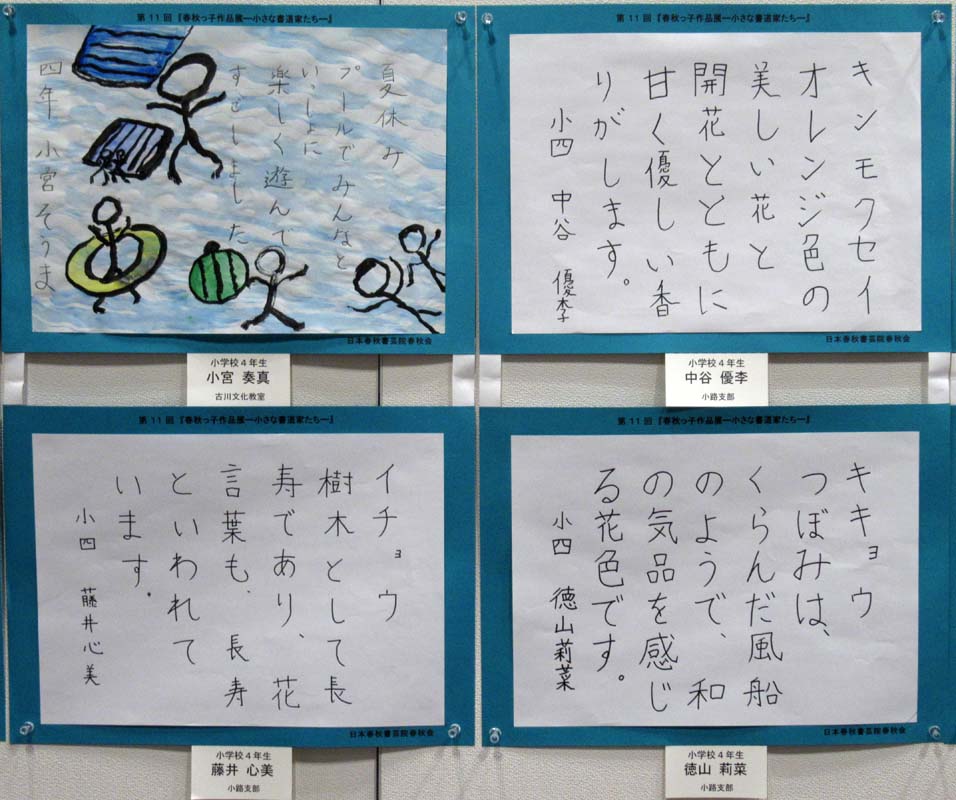 第11回『春秋っ子作品展―小さな書道家たち―』
夏休み
プールでみんなと
いっしょに
楽しく遊んで
すごしました
四年 小宮そうま
日本春秋書芸院春秋会
小学校4年生
小宮 奏真
古川文化教室
第11回『春秋っ子作品展―小さな書道家たち―』
キンモクセイ
オレンジ色の
美しい花と
開花とともに
甘く優しい香
りがします。
小四 中谷 優李
日本春秋書芸院春秋会
小学校4年生
中谷 優李
小路支部
第11回『春秋っ子作品展―小さな書道家たち―』
イチョウ
樹木として長
寿であり、花
言葉も、長寿
といわれて
います。
小四 藤井心美
日本春秋書芸院春秋会
小学校4年生
藤井 心美
小路支部
第11回『春秋っ子作品展―小さな書道家たち―』
キキョウ
つぼみは、
くらんだ風船
のようで、和
の気品を感じ
る花色です。
小四 徳山莉菜
日本春秋書芸院春秋会
小学校4年生
徳山 莉菜
小路支部